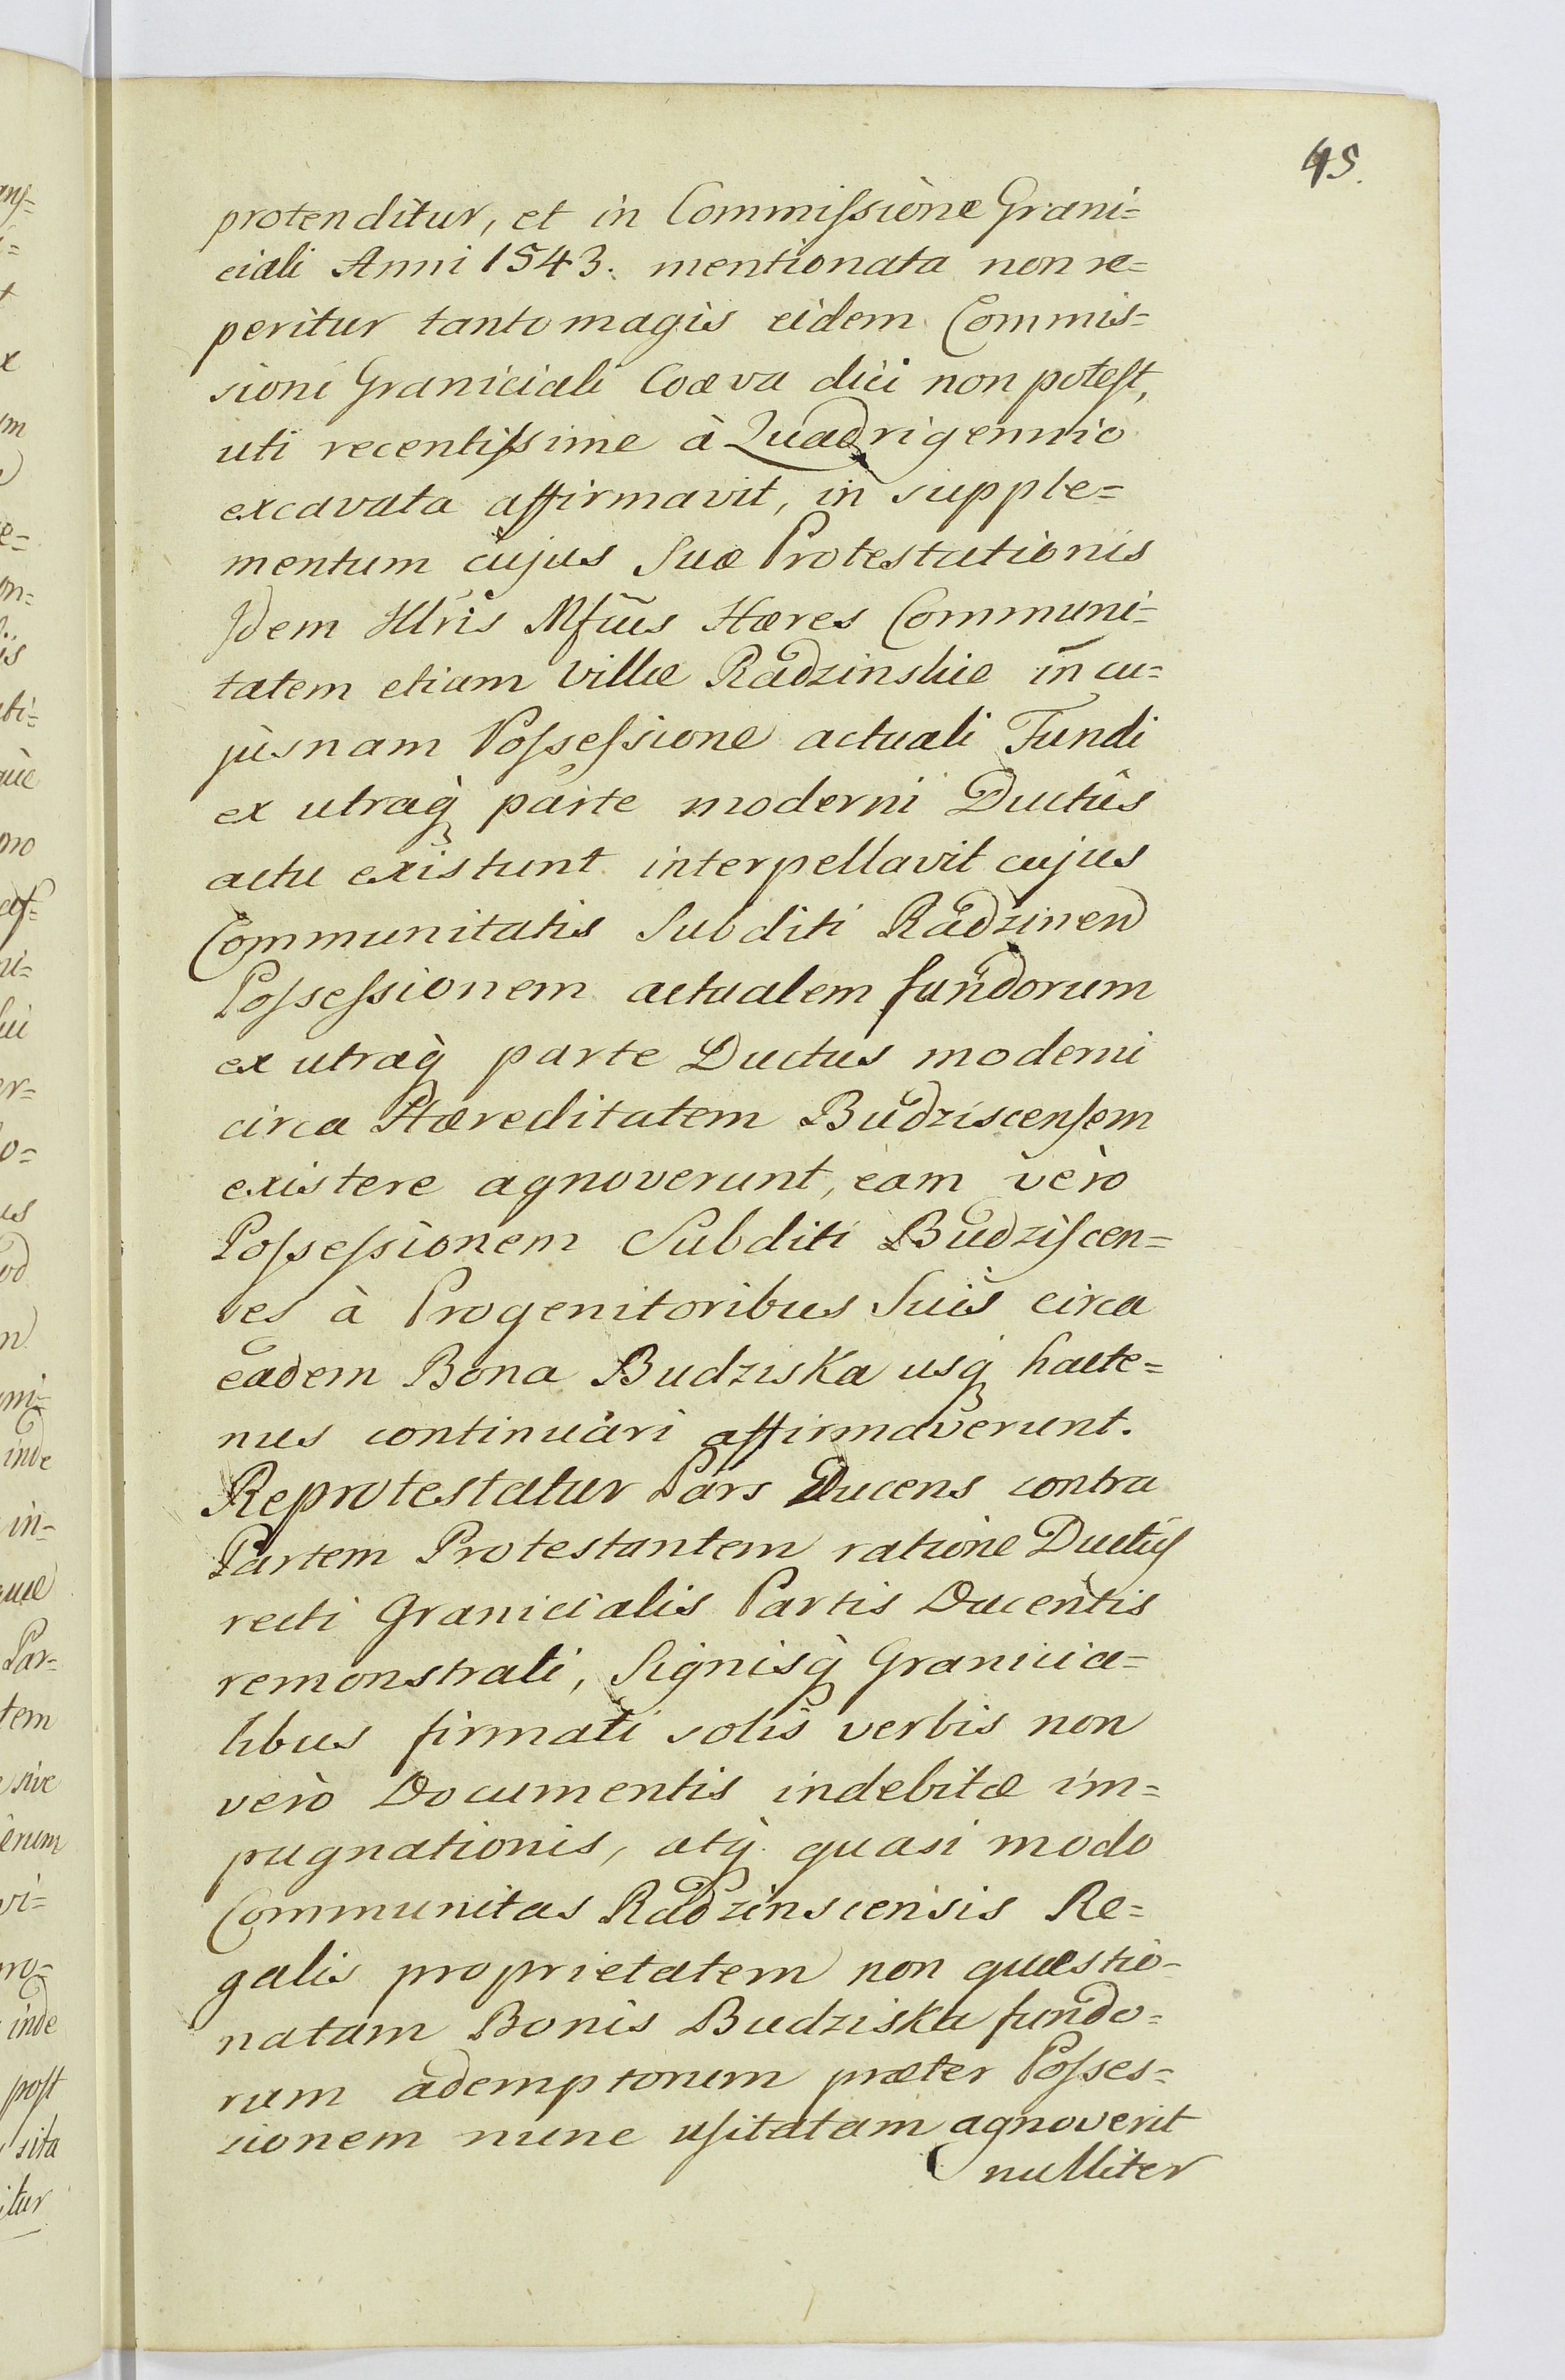 45.
protenditur, et in Commiſsione Grani=
ciali Anni 1543. mentionata non re=
peritur tanto magis eidem Commis=
sioni Graniciali Coæva dici non poteſt,
uti recentiſsime à Quadrigennio
excavata affirmavit, in supple=
mentum cujus Suæ Protestationis
Idem Illris Mfcus Hæres Communi=
tatem etiam Villæ Radzinskie in cu=
jusnam Poſseſsione actuali Fundi
ex utraq̀ parte moderni Ductûs
actu existunt interpellavit cujus
Communitatis Subditi Radzinen
Poſseſsionem actualem fundorum
ex utraq̀ parte Ductus moderni
circa Hæreditatem Budziscenſem
existere agnoverunt, eam verò
Poſseſsionem Subditi Budziſcen=
ses à Progenitoribus Suis circa
eadem Bona Budziska usq̀ hacte=
nus continuari affirmaverunt.
Reprotestatur Pars Ducens contra
Partem Protestantem ratione Ductûſ
recti Granicialis Partis Ducentis
remonstrati, Signisq̀ Granicia=
libus firmati solis verbis non
verò Documentis indebitæ im=
pugnationis, atq̀ quasi modo
Communitas Radzinscensis Re=
galis proprietatem non quæstio=
natam Bonis Budziska fundo=
rum ademptorum præter Poſses=
sionem nunc uſitatam agnoverit
nulliter